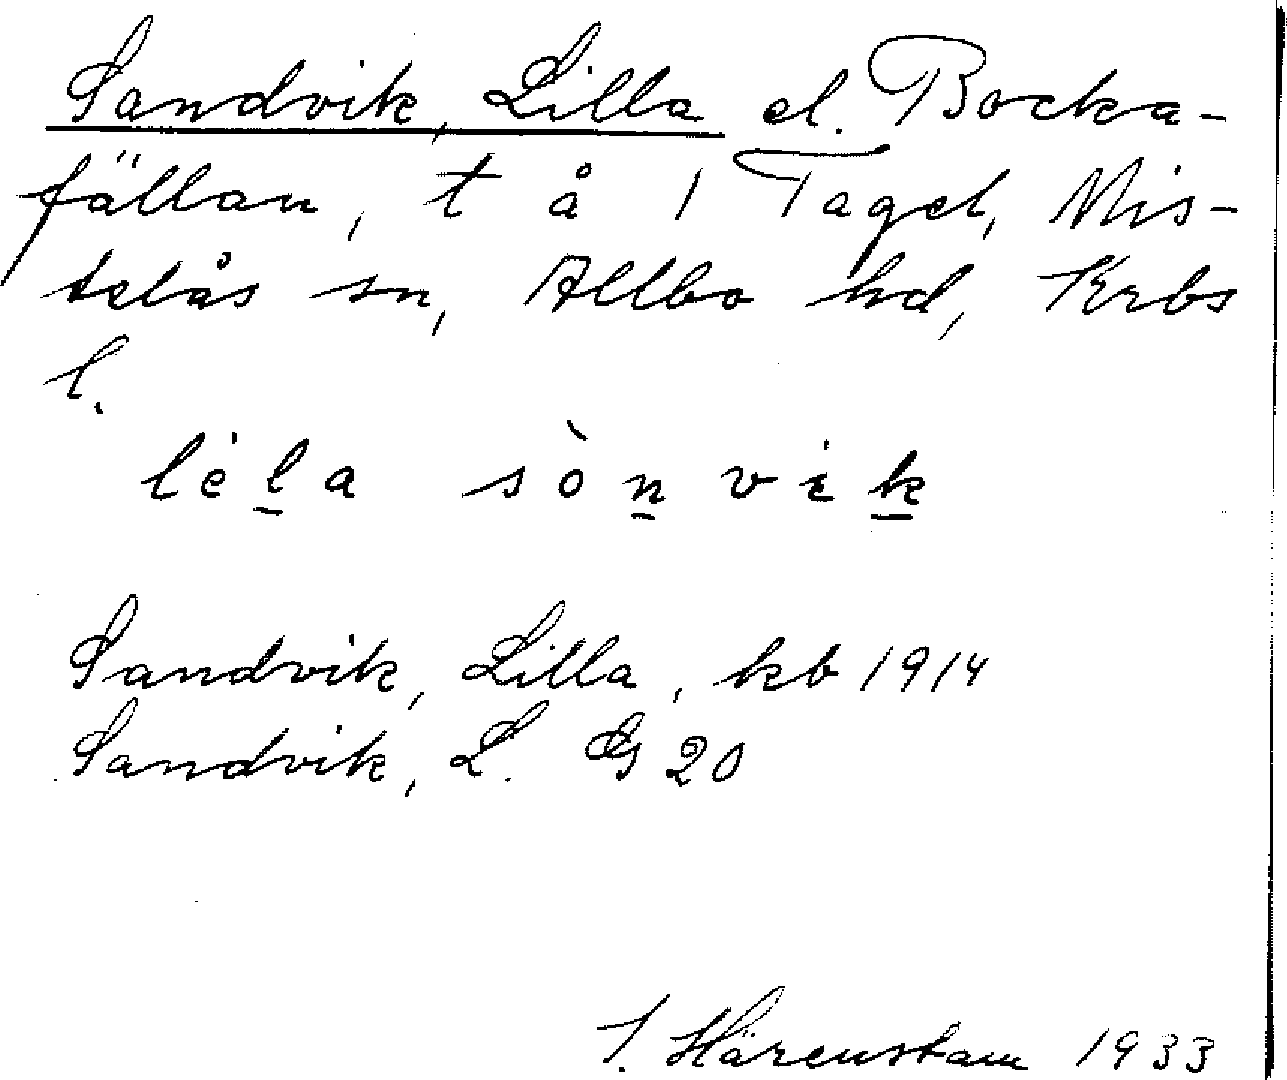 Sandvik, Lilla el. Bocka-
fällan, t å 1 Tagel, Mis-
telås sn, Allbo hd, Krbs
l.
lèla sònvik
Sandvik, Lilla, kb 1914
Sandvik, L. GG 20
J. Härenstam 1933